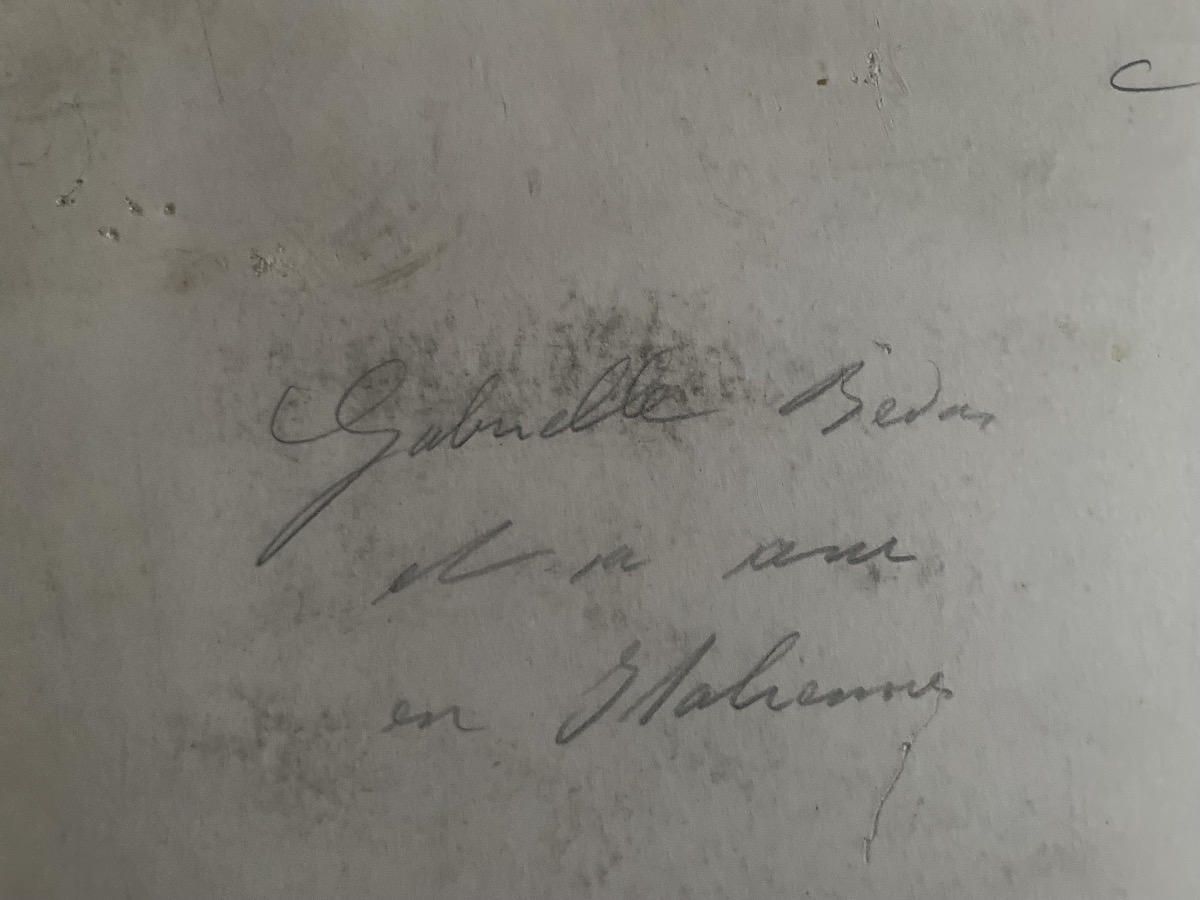 Gabrielle Bédas
et sa sœur
en Italiennes